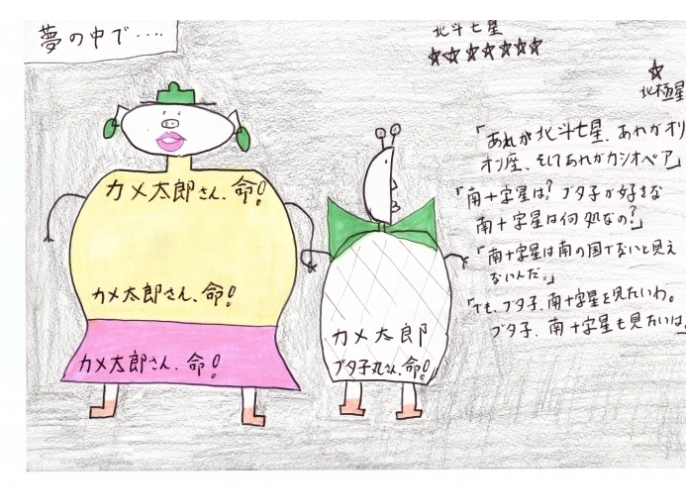 夢の中で‥‥
北斗七星
北極星
「あれが北斗七星、あれがオリ
オン座、そしてあれがカシオペア」
「南十字星は?ブタ子が好きな
南十字星は何処なの?」
「南十字星は南の国でないと見え
ないんだ。」
「でも、ブタ子、南十字星を見たいわ。
ブタ子、南十字星も見たいは。
カメ太郎さん、命!
カメ太郎さん、命!
カメ太郎さん、命!
カメ太郎
ブタ子丸さん、命!